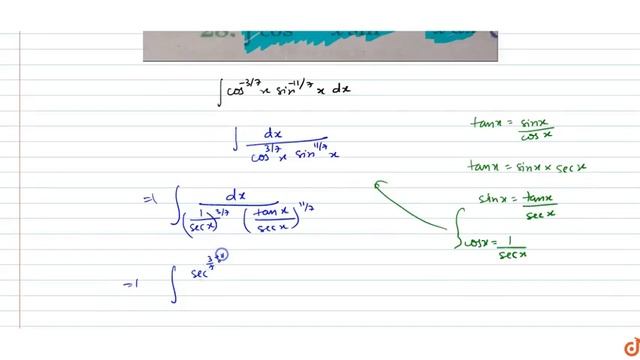 28. ∫cos
∫cos^{-3/7} x sin^{-11/7} x dx
∫ dx / (cos^{3/7} x sin^{11/7} x)
=) ∫ dx / ((1/sec x)^{3/7} (tan x/sec x)^{11/7})
=) ∫ sec^{3/7+11}
tan x = sin x / cos x
tan x = sin x × sec x
sin x = tan x / sec x
cos x = 1 / sec x